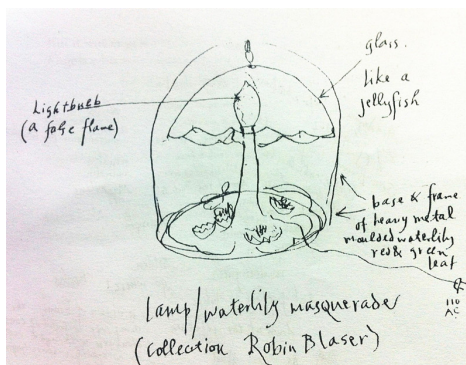 glass.
Like a
jellyfish
Lightbulb
(a false flame)
base & frame
of heavy metal
moulded waterlily
red & green
leaf
110
AC.
lamp/waterlily masquerade
(collection Robin Blaser)